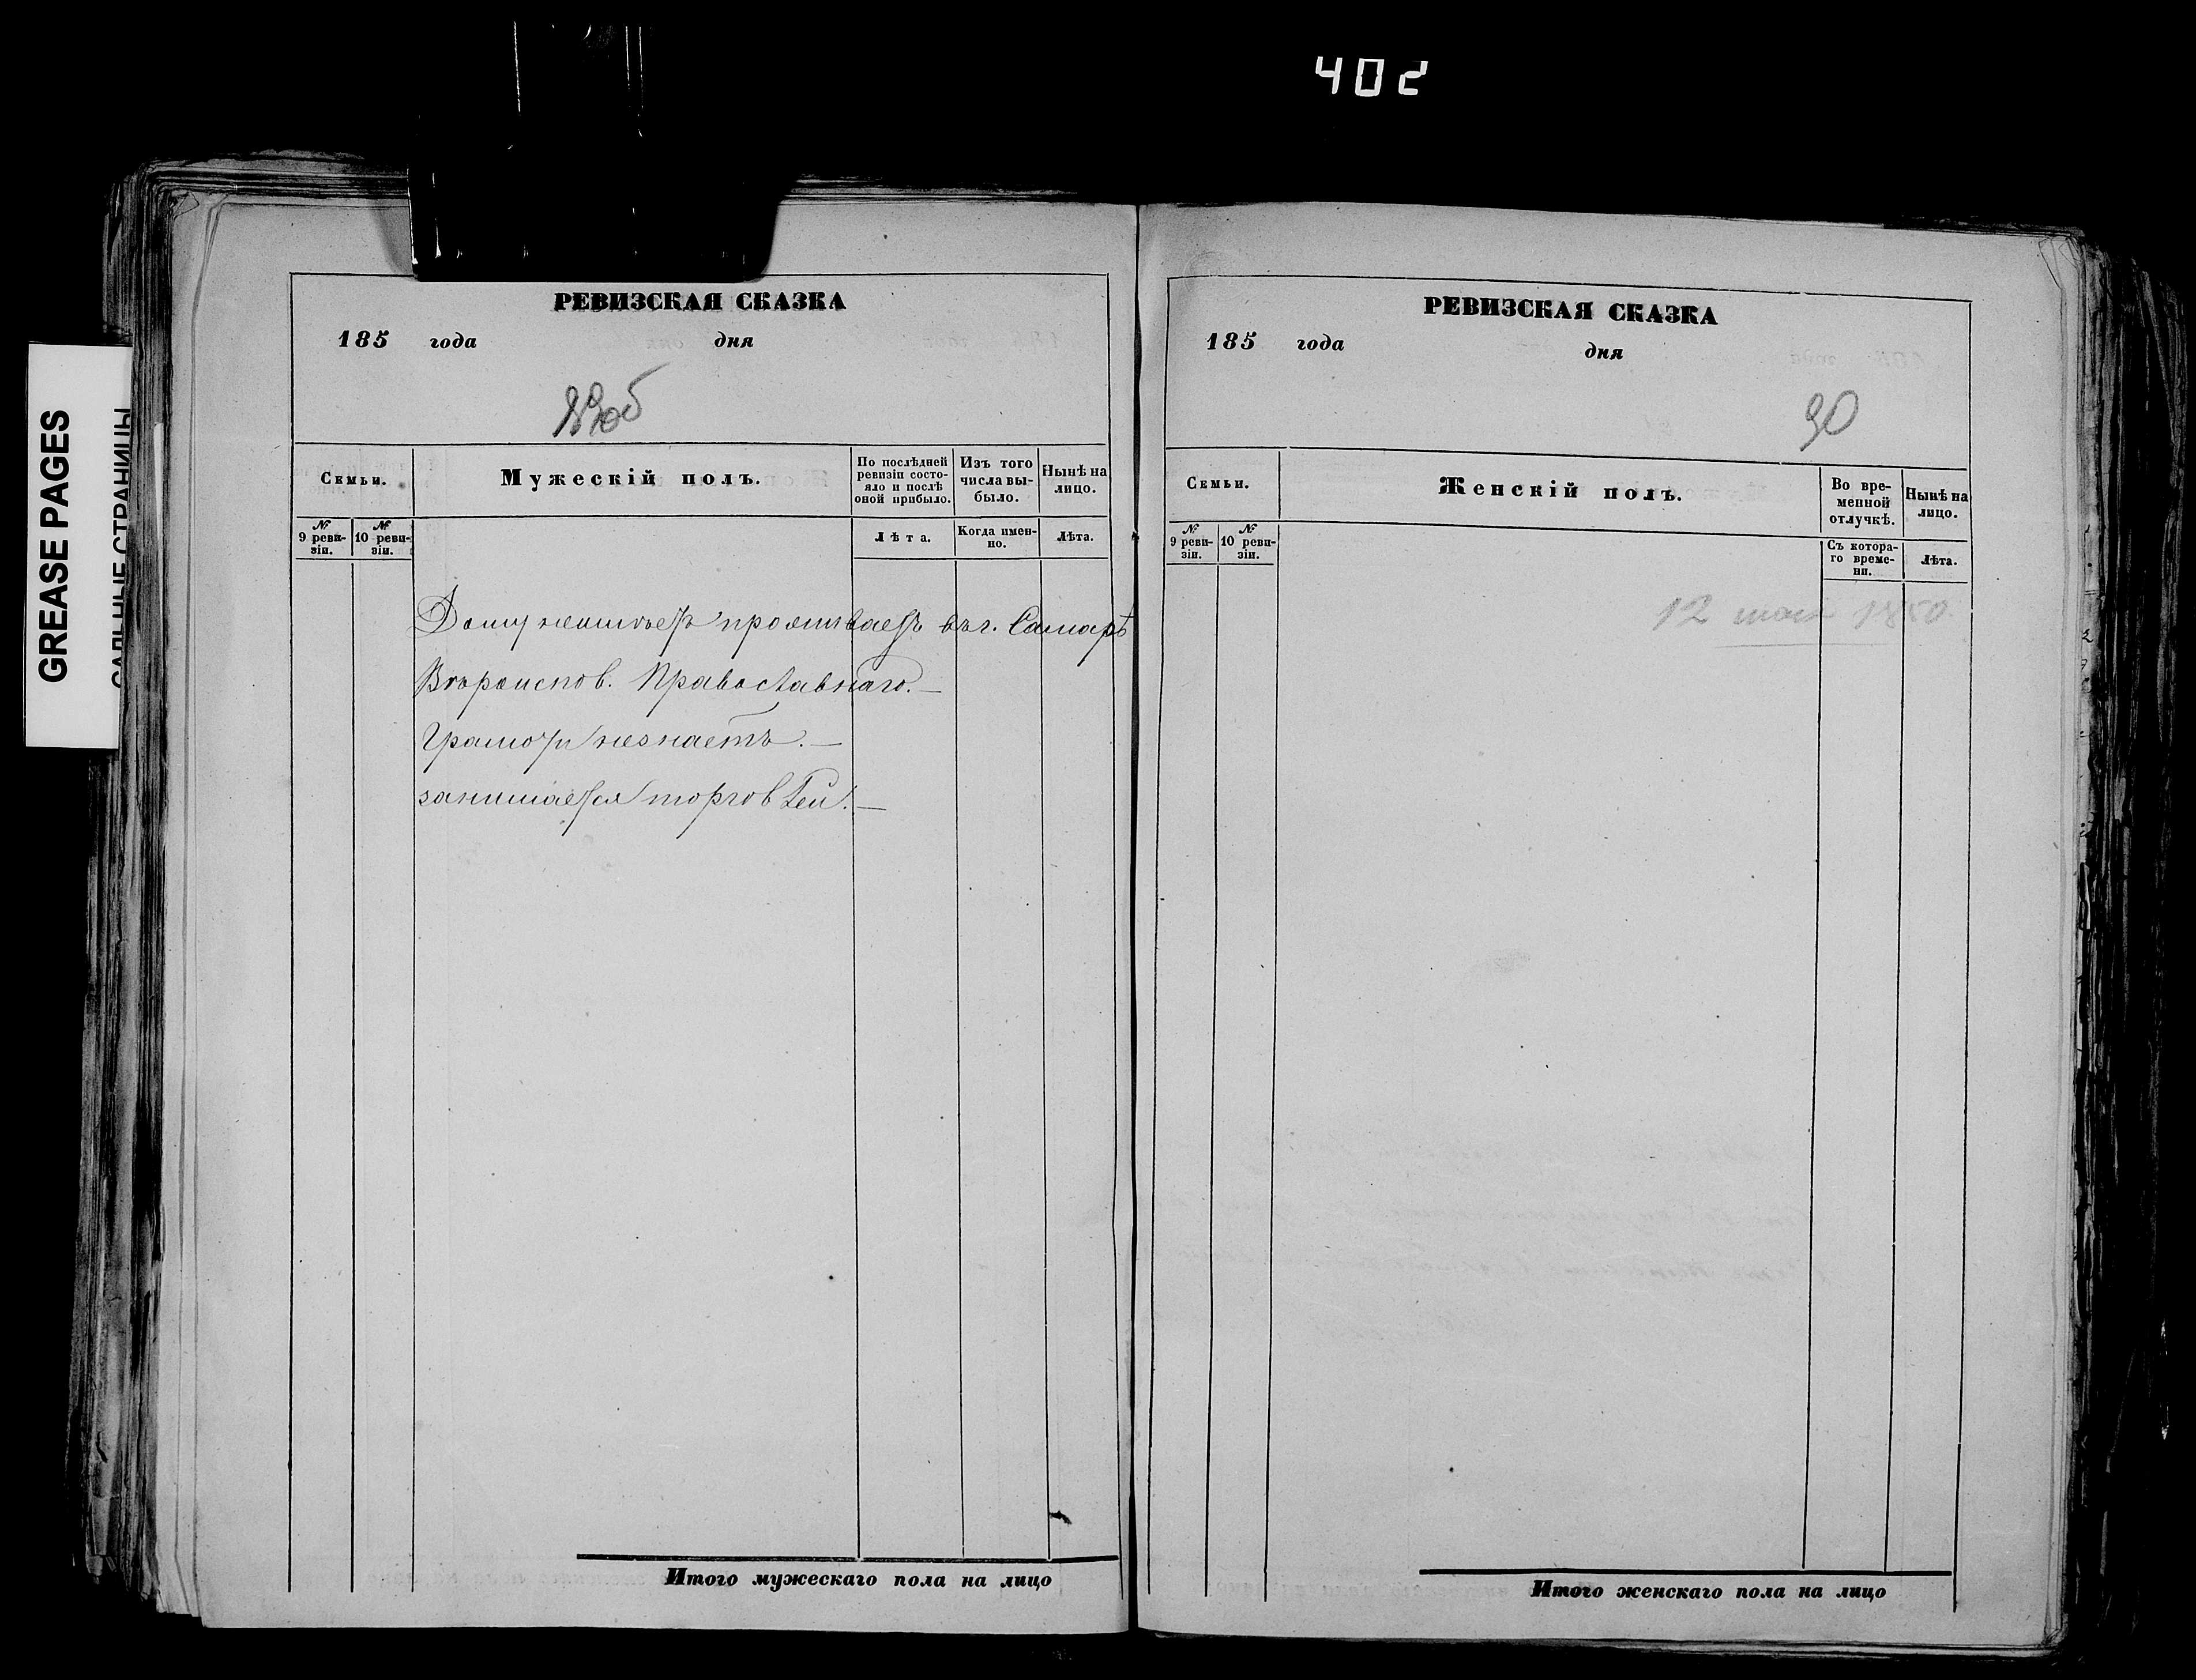 402
GREASE PAGES
САЛЬНЫЕ СТРАНИЦЫ
РЕВИЗСКАЯ СКАЗКА
185 года дня
Семьи.
Мужескій полъ.
По послѣдней ревизіи состояло и послѣ оной прибыло.
Изъ того числа выбыло.
Нынѣ на лицо.
№ 9 ревизіи.
№ 10 ревизіи.
Лѣта.
Когда именно.
Лѣта.
Дому неимѣетъ проживаетъ въ г. Самарѣ
Вѣроиспов. Православнаго.—
Грамоти незнаетъ.—
занимается торговлей.—
Итого мужескаго пола на лицо
РЕВИЗСКАЯ СКАЗКА
185 года дня
90
Семьи.
Женскій полъ.
Во временной отлучкѣ.
Нынѣ на лицо.
№ 9 ревизіи.
№ 10 ревизіи.
Съ котораго времени.
Лѣта.
12 мая 1850
Итого женскаго пола на лицо